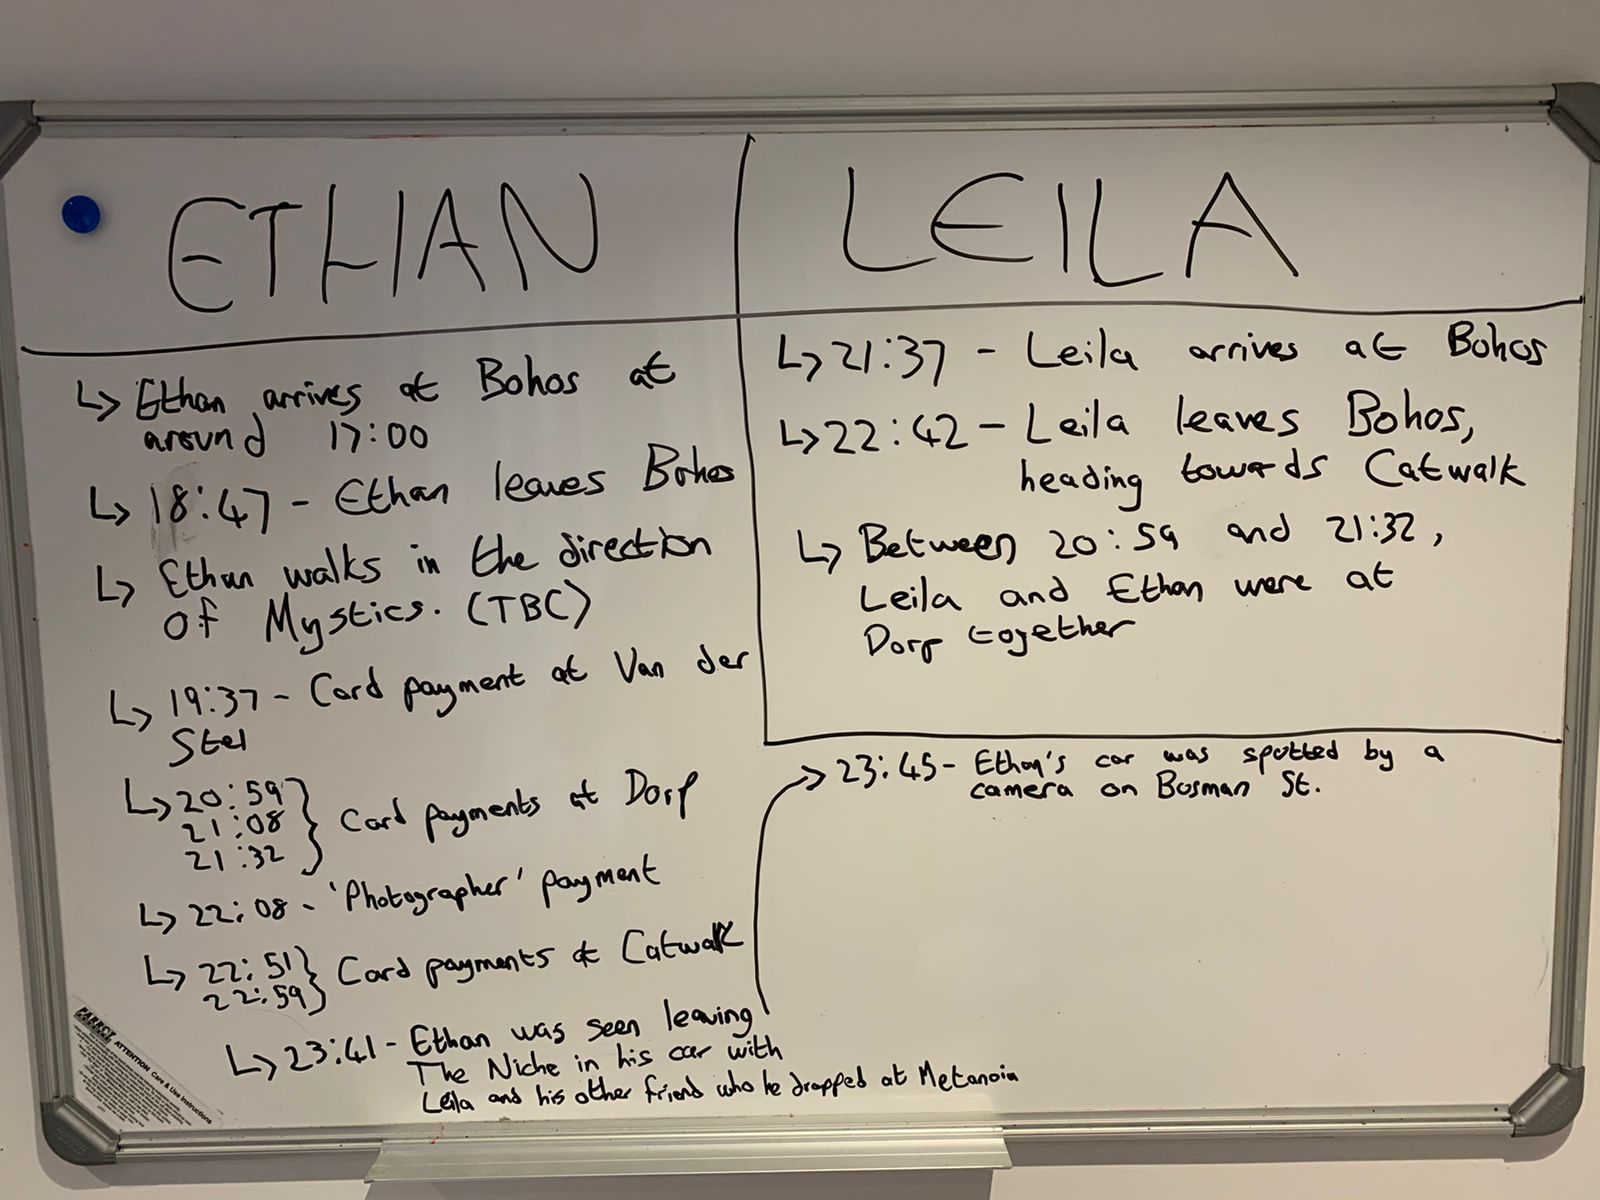 ETHAN
↳ Ethan arrives at Bohos at
around 17:00
↳ 18:47 - Ethan leaves Bohos
↳ Ethan walks in the direction
of Mystics. (TBC)
↳ 19:37 - Card payment at Van der
Stel
↳ 20:59
21:08
21:32 } Card payments at Dorp
↳ 22:08 - 'Photographer' payment
↳ 22:51
22:59 } Card payments at Catwalk
↳ 23:41 - Ethan was seen leaving
The Niche in his car with
Leila and his other friend who he dropped at Metanoia
LEILA
↳ 21:37 - Leila arrives at Bohos
↳ 22:42 - Leila leaves Bohos,
heading towards Catwalk
↳ Between 20:59 and 21:32,
Leila and Ethan were at
Dorp together
→ 23:45 - Ethan's car was spotted by a
camera on Bosman St.
PARROT
ATTENTION Care & Use Instructions